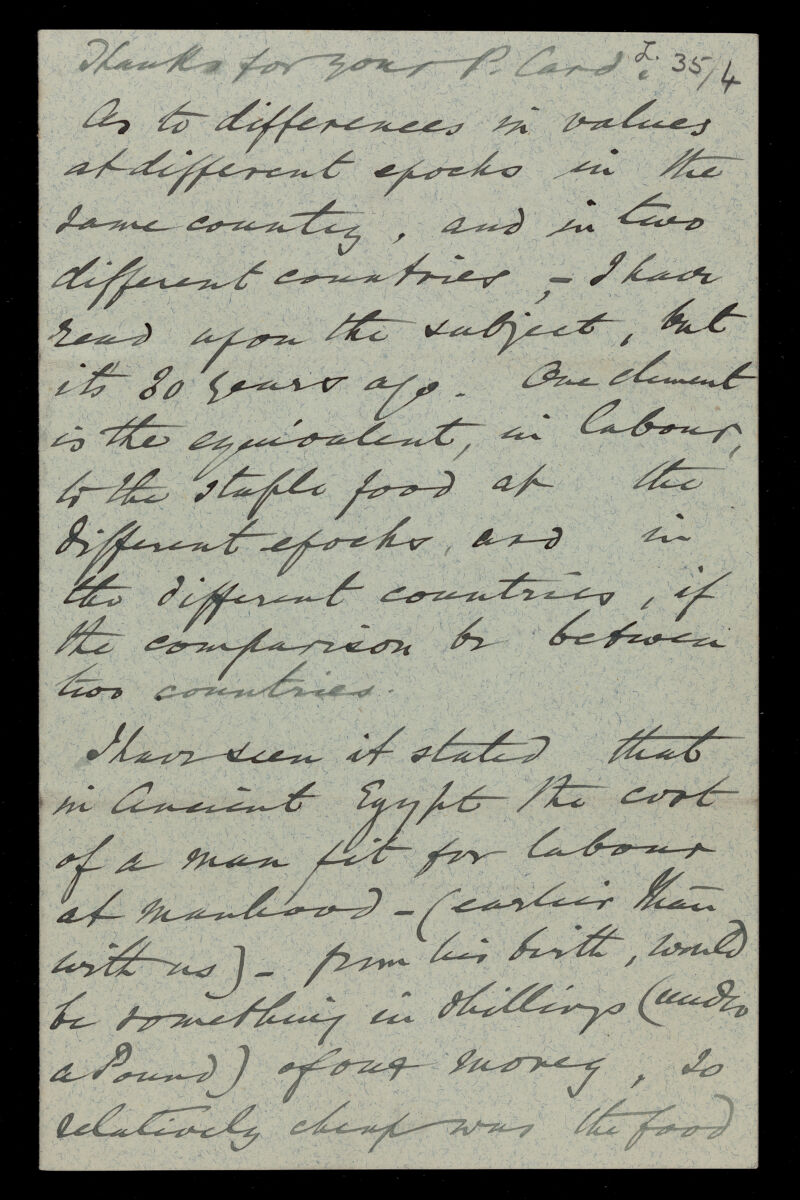 Thanks for your P. Card. L. 35/4
As to differences in values
at different epochs in the
same country, and in two
different countries, – I have
read upon the subject, but
its 30 years ago. One element
is the equivalent, in labour,
to the staple food at the
different epochs, and in
the different countries, if
the comparison be between
two countries.
I have seen it stated that
in Ancient Egypt the cost
of a man fit for labour
at manhood – (earlier than
with us) – from his birth, would
be something in shillings (under
a Pound) of our money, so
relatively cheap was the food